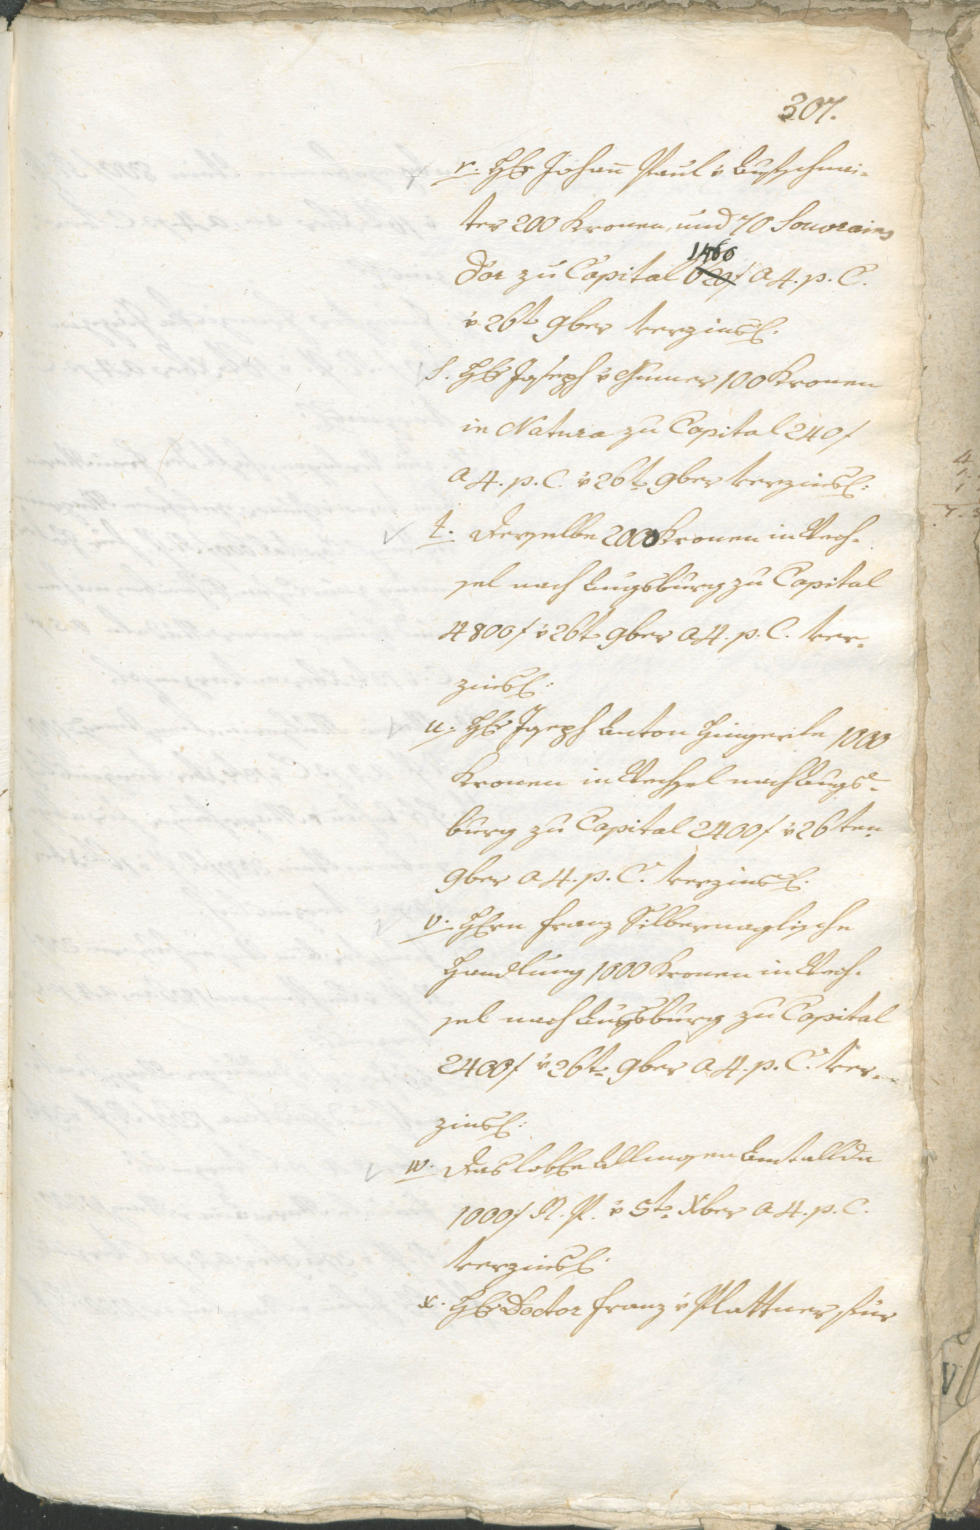 307.
r. Hr Johan̅ Paul v Buschmei-
ter 200 Kronen, und 70 Souvrains
d'or zu Capital 1466 f a 4. p. C.
v 26t 9ber verzinsl:
s. Hr Joseph v Gumer 100 Kronen
in Natura zu Capital 240 f
a 4. p. C. v 26t 9ber verzinsl:
t. derselbe 2000 Kronen in Wech-
sel nach Augsburg zu Capital
4800 f v 26t 9ber a 4. p. C. ver-
zinsl:
u. Hr Joseph Anton Hingerle 1000
Kronen in Wechsel nach Augs-
burg zu Capital 2400 f v 26ten
9ber a 4. p. C. verzinsl:
v. Hern Franz Silbernaglische
Handlung 1000 Kronen in Wech-
sel nach Augsburg zu Capital
2400 f v 26t 9ber a 4. p. C. ver-
zinsl:
w. das lobl
1000 f R. W. v 5t Xber a 4. p. C.
verzinsl:
x. Hr Doctor Franz v Plattner für